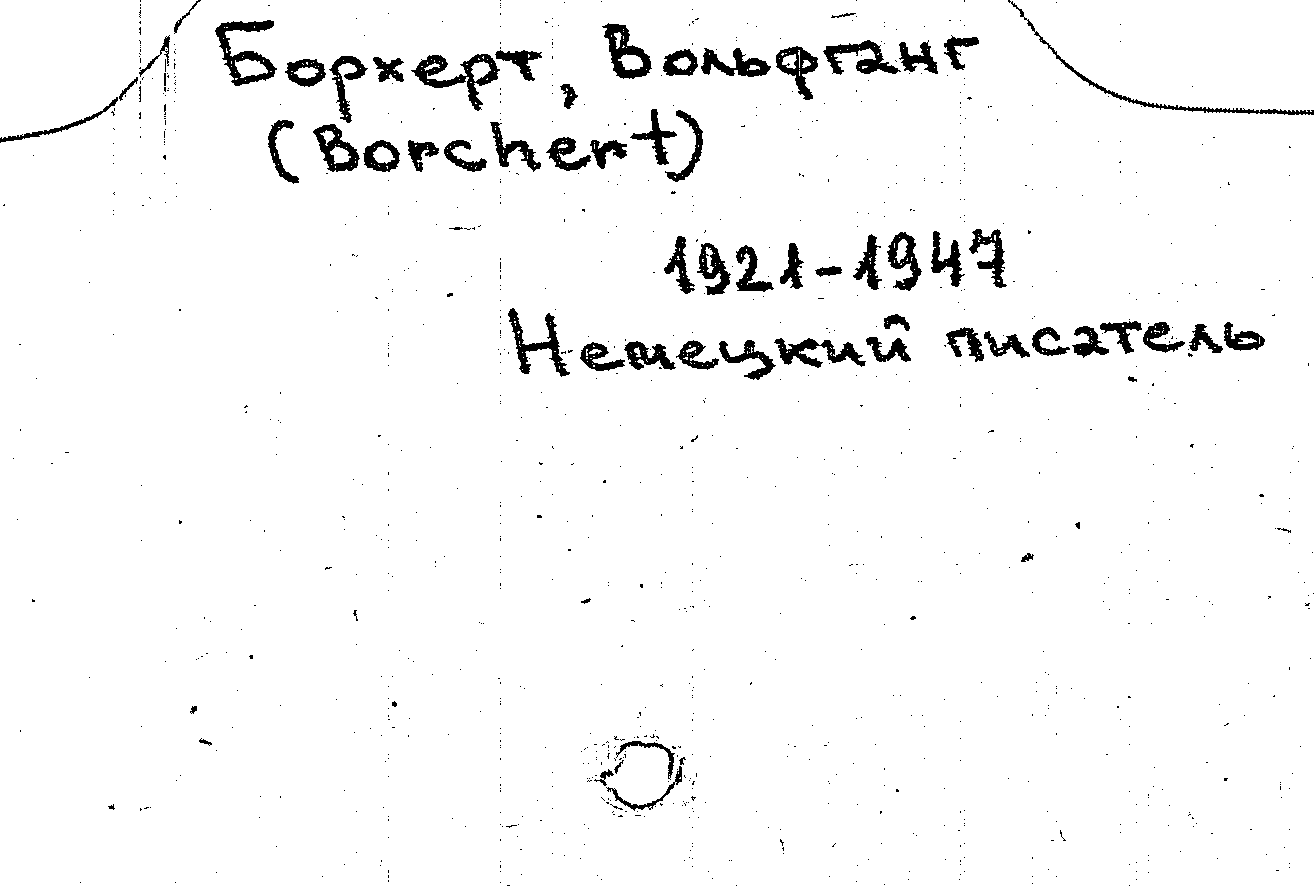 Борхерт, Вольфганг
(Borchert)
1921-1947
Немецкий писатель